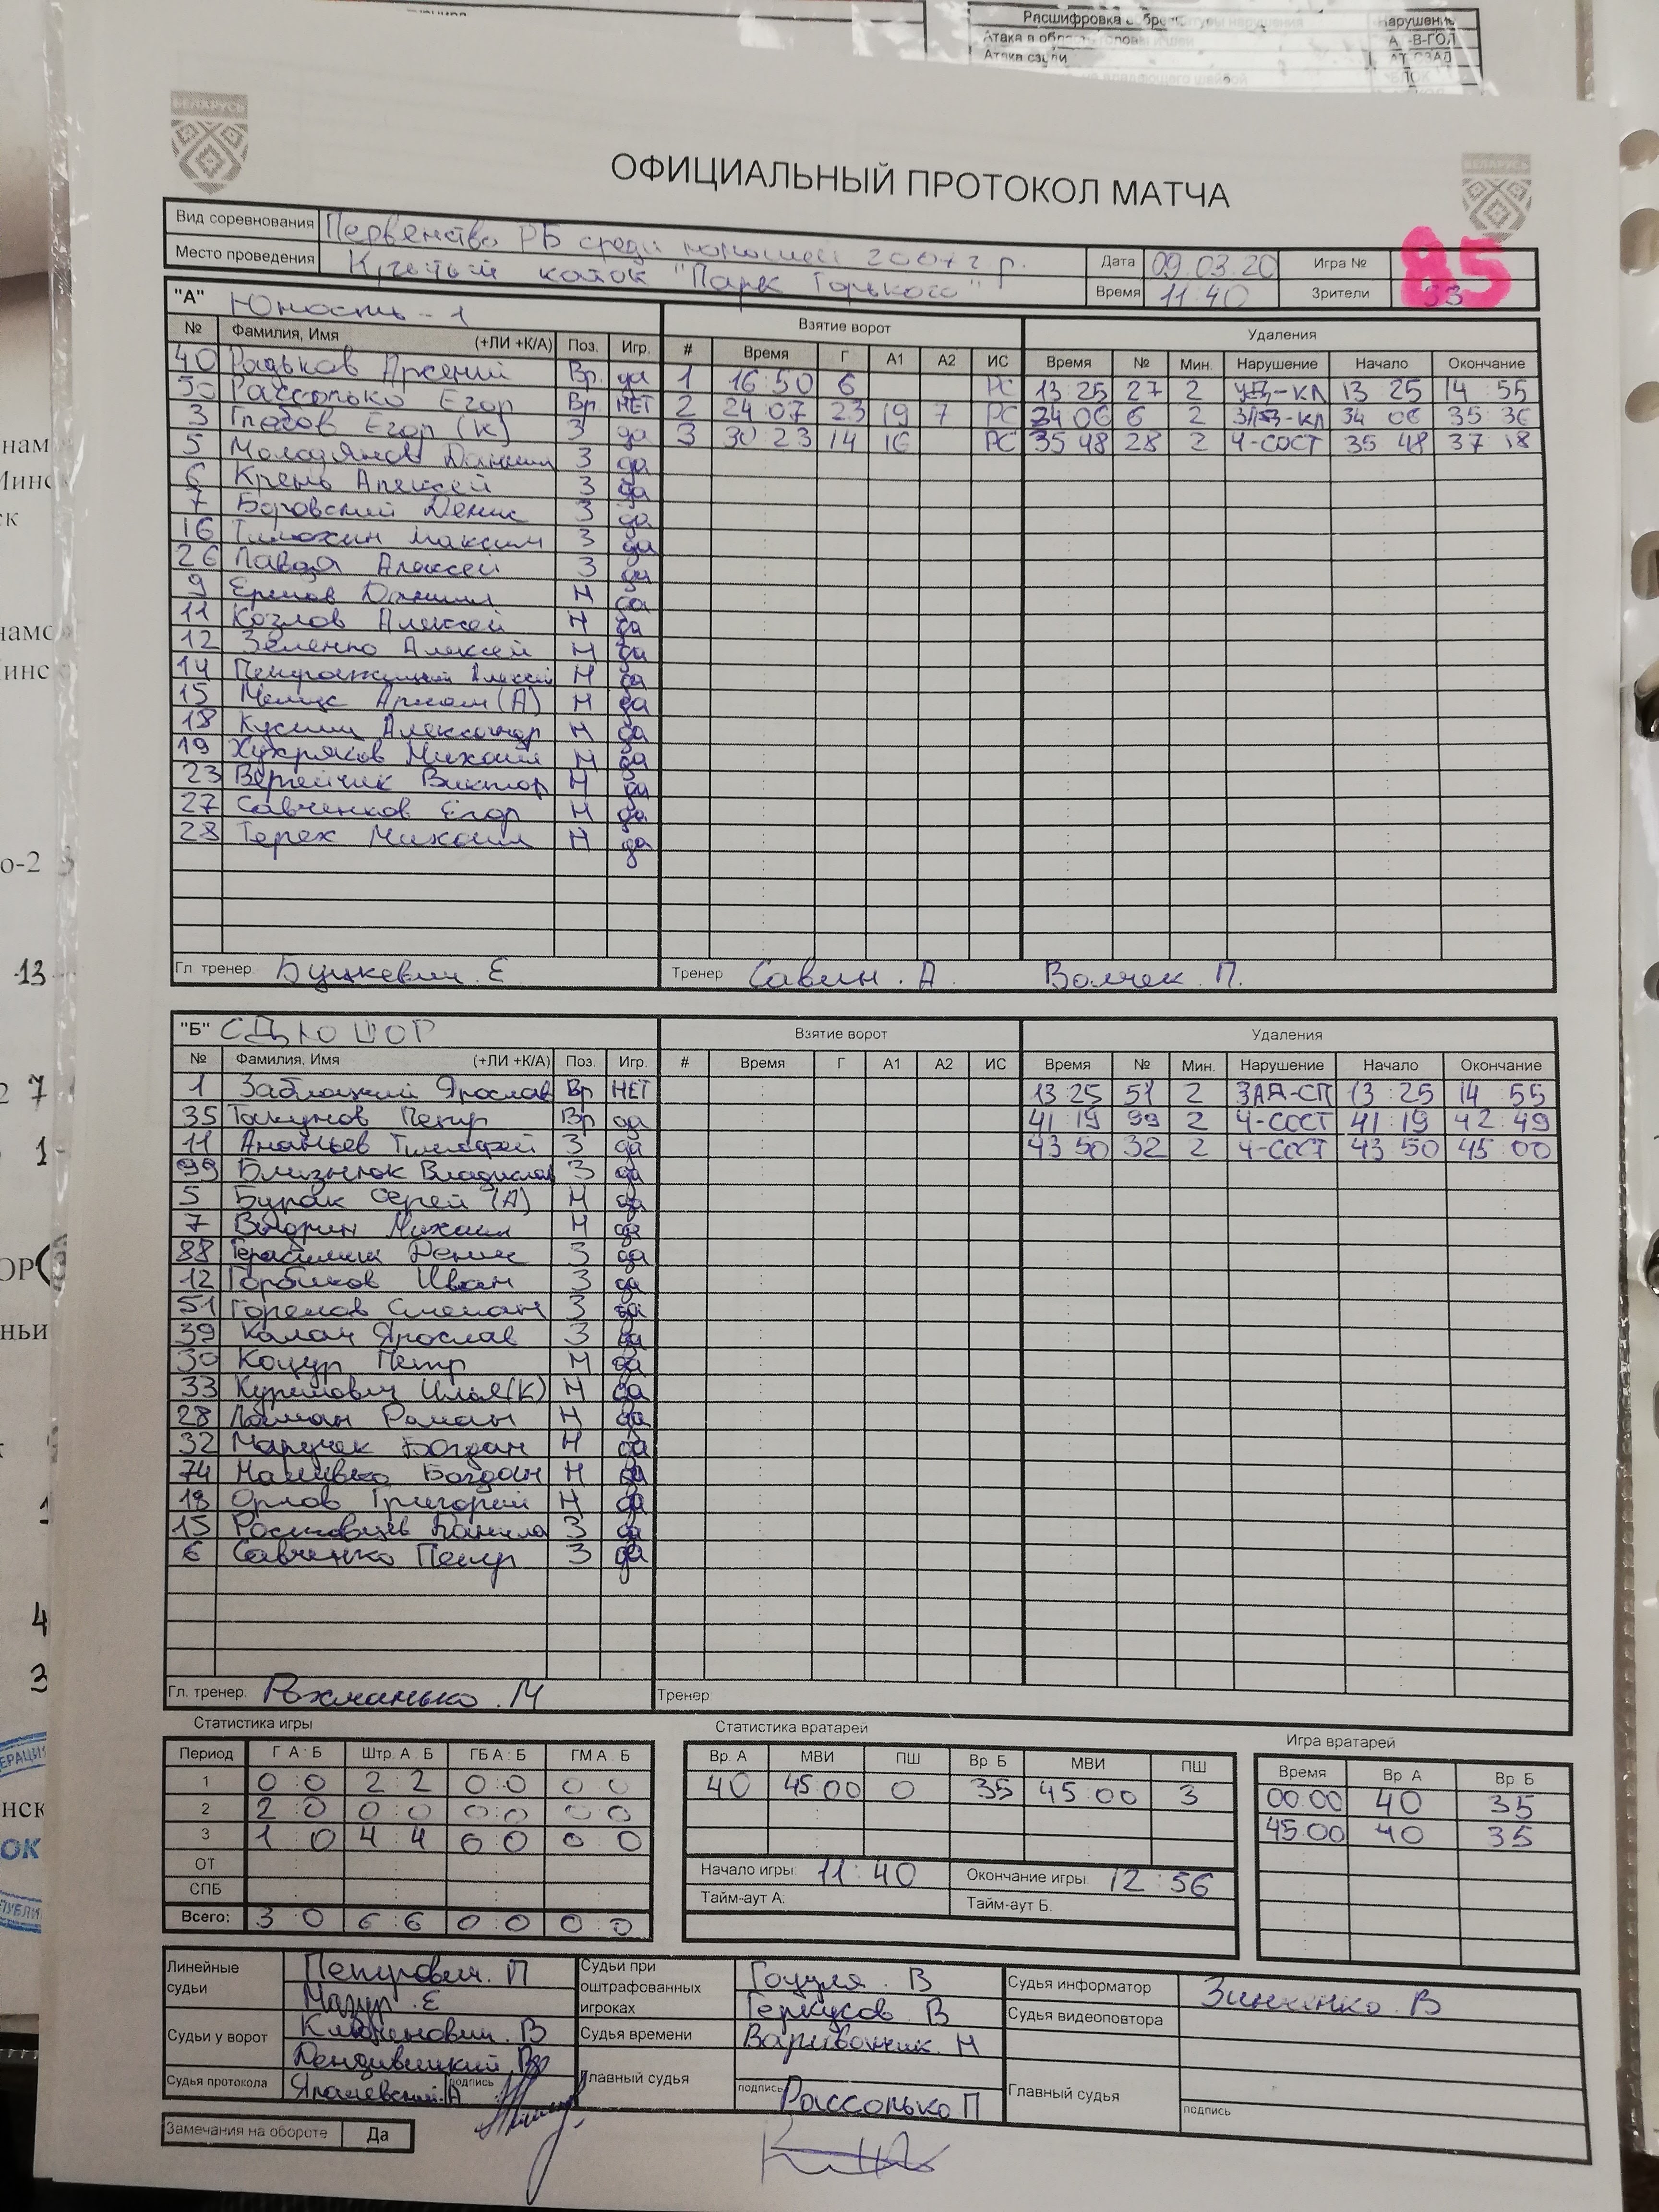 Расшифровка
Нарушень
Атака в обл
Атака сзади
БЕЛАРУСЬ
БЕЛАРУСЬ
ОФИЦИАЛЬНЫЙ ПРОТОКОЛ МАТЧА
Вид соревнования Первенство РБ среди юношей 2007 г р.
Место проведения Крытый каток "Парк Горького"
Дата 09.03.20 Игра № 85
Время 11:40 Зрители 33
"А" Юность-1 Взятие ворот Удаления
№ Фамилия, Имя (+ЛИ +К/А) Поз. Игр. # Время Г А1 А2 ИС Время № Мин. Нарушение Начало Окончание
40 Радьков Арсений Вр. да 1 16:50 6 РС 13 25 27 2 -КЛ 13 25 14 55
50 Рассолько Егор Вр. НЕТ 2 24 07 23 19 7 РС 34 06 6 2 -КЛ 34 06 35 36
3 Глебов Егор (К) З да 3 30 23 14 16 РС 35 48 28 2 Ч-СОСТ 35 48 37 18
5 Молодянов Даниил З да
6 Крень Алексей З да
7 Боровский Денис З да
16 Тимохин Максим З да
26 Лавдя Алексей З да
9 Ермов Даниил Н да
11 Козлов Алексей Н да
12 Зеленко Алексей Н да
14 Алексей Н да
15 Артем (А) Н да
18 Александр Н да
19 Хухряков Михаил Н да
23 Вергейчик Виктор Н да
27 Савченков Егор Н да
28 Терех Михаил Н да
Гл. тренер Буцкевич. Е Тренер Савин. А. Волчек. П.
"Б" СДЮШОР Взятие ворот Удаления
№ Фамилия, Имя (+ЛИ +К/А) Поз. Игр. # Время Г А1 А2 ИС Время № Мин. Нарушение Начало Окончание
1 Заблоцкий Ярослав Вр НЕТ 13 25 51 2 ЗАД-СП 13:25 14 55
35 Такунов Петр Вр да 41 19 99 2 Ч-СОСТ 41:19 42 49
11 Ананьев Тимофей З да 43 50 32 2 Ч-СОСТ 43 50 45 00
99 Близнюк Владислав З да
5 Бурак Сергей (А) Н да
7 Выдрин Михаил Н да
88 Герасимчик Денис З да
12 Горбиков Иван З да
51 Горелов Степан З да
39 Калач Ярослав З да
30 Коцур Петр Н да
33 Курилович Илья(К) Н да
28 Лоиман Роман Н да
32 Маручек Богдан Н да
74 Наливко Богдан Н да
18 Орлов Григорий Н да
15 Ростовцев Данила З да
6 Савченко Петр З да
Гл. тренер. Рахманько. М Тренер
Статистика игры Статистика вратарей Игра вратарей
Период Г А : Б Штр. А : Б ГБ А : Б ГМ А : Б Вр. А МВИ ПШ Вр. Б МВИ ПШ Время Вр. А Вр. Б
1 0:0 2:2 0:0 0 0 40 45:00 0 35 45:00 3 00:00 40 35
2 2:0 0:0 0:0 0 0 45:00 40 35
3 1:0 4 4 0 0 0 0
ОТ
СПБ
Всего: 3:0 6:6 0:0 0:0
Начало игры: 11:40 Окончание игры: 12:56
Тайм-аут А: Тайм-аут Б.
Линейные судьи Петрович. П Мазур. Е
Судьи при оштрафованных игроках Гоцуля. В Геркусов. В
Судья информатор Зинченко. В
Судья видеоповтора
Судьи у ворот Клименович. В
Судья времени Варивончик. Н
Судья протокола А подпись
Главный судья подпись Рассолько П
Главный судья подпись
Замечания на обороте Да